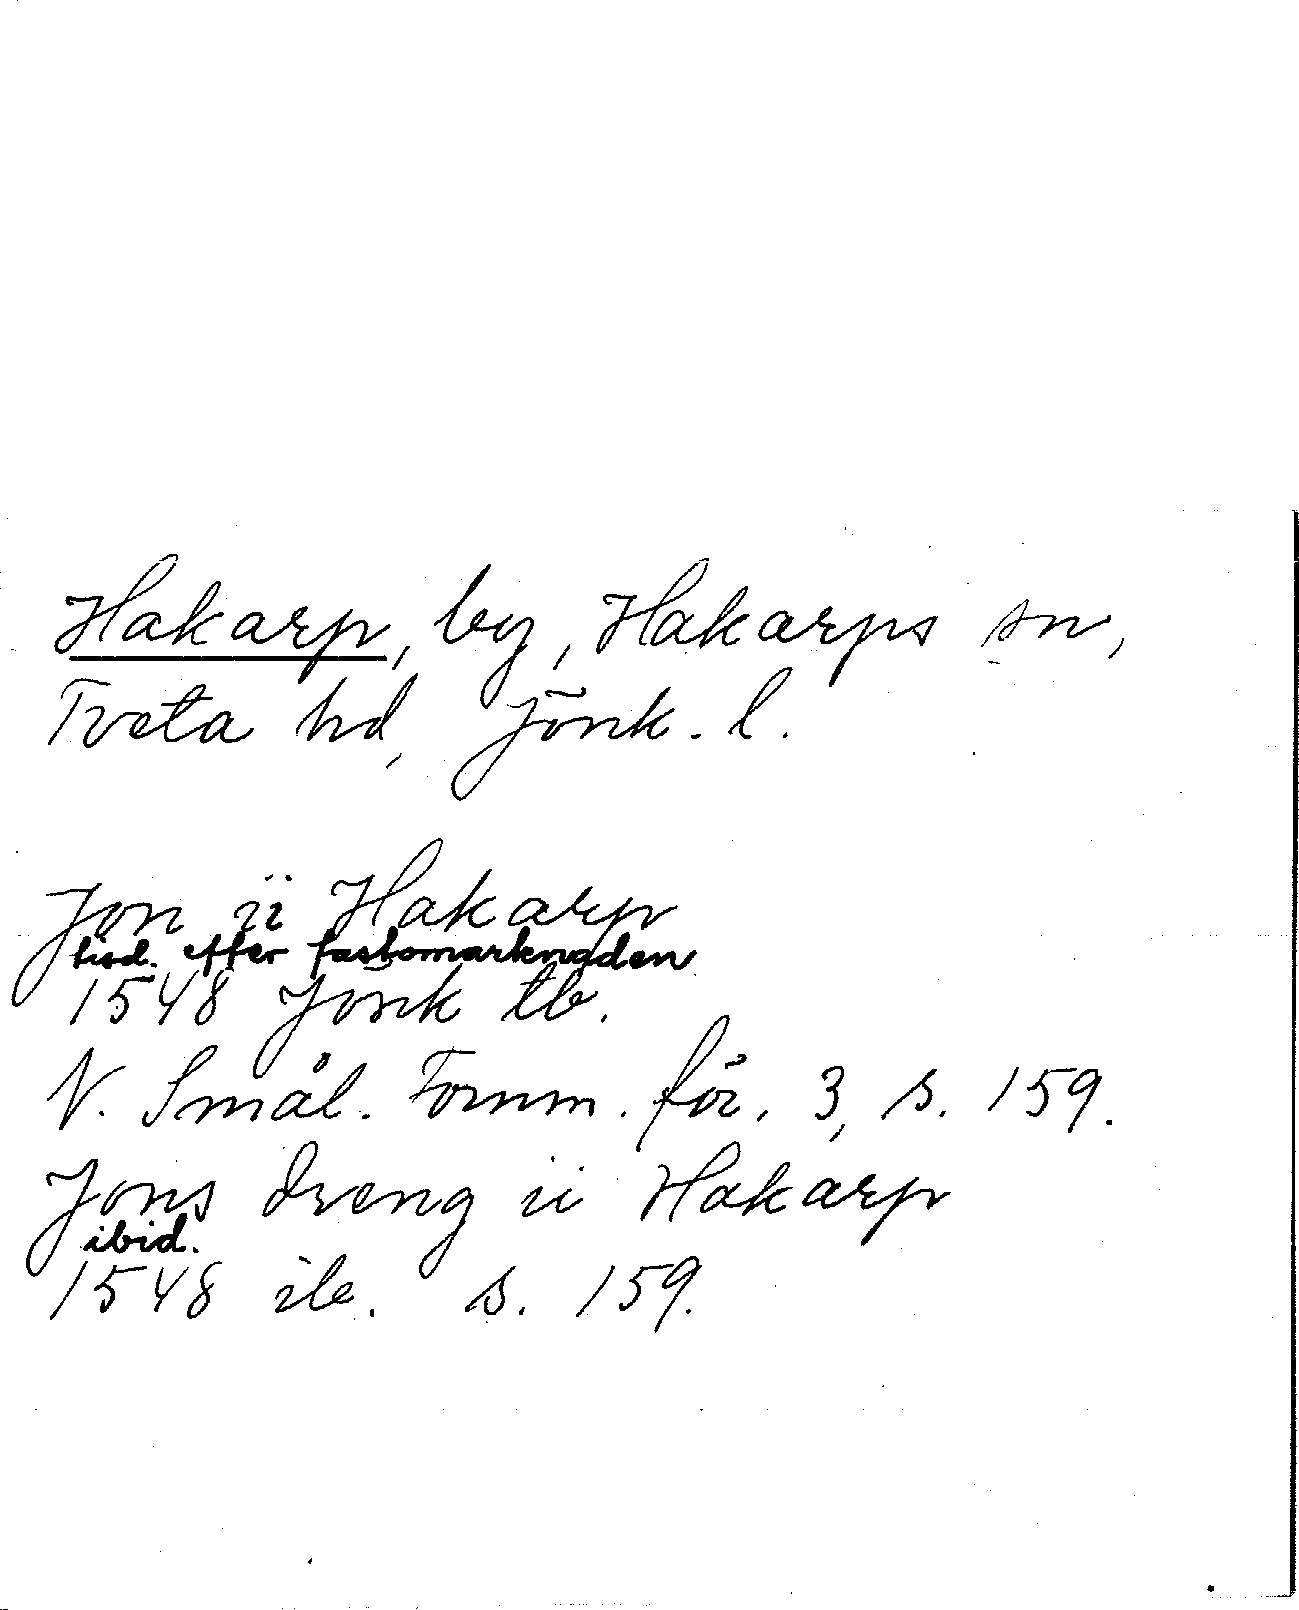 Hakarp, by, Hakarps sn,
Tveta hd, Jönk. l.
Jon ii Hakarp
tisd. efter fastomarknaden
1548 Jönk tb.
N. Smål. Fornm. för. 3, s. 159.
Jons dreng ii Hakarp
ibid.
1548 ib. s. 159.